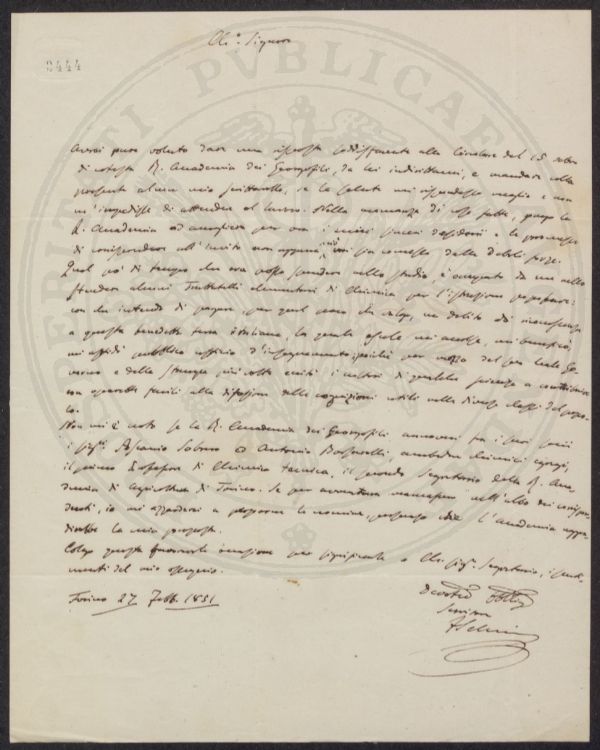 2444
PVBLICAE
Ch.º Signore
Avrei pure voluto dare una risposta soddisfacente alla Circolare del 15
di cotesta R. Accademia dei Georgofili, da lei indirittami, e mandare colla
presente alcun mio scritterello, se la salute mi rispondesse meglio e non
m'impedisse di attendere al lavoro. Nella mancanza di ciò prego la
R. Accademia ad accogliere per ora i miei sinceri desiderii e la promessa
di corrispondere all'invito non appena mi sia concesso dalle deboli forze.
Quel po' di tempo che ora posso spendere nello studio, è occupato da me nello
stendere alcuni Trattatelli elementari di Chimica per l'istruzione popolare:
con che intendo di pagare, per quel poco che valgo, un debito di riconoscenza
a questa benedetta terra italiana, la quale esule mi accolse, mi beneficò,
mi affidò pubblico ufficio d'insegnamento, poichè per mezzo del suo leale Go-
verno e della stampa più volte eccitò i cultori di qualche scienza a contribuire
con operette facili alla diffusione delle cognizioni utili nelle diverse classi del popo-
lo.
Non mi è noto se la R. Accademia dei Georgofili annoveri tra i suoi socii
i sigri. Ascanio Sobrero ed Antonio Borsarelli, ambedue chimici egregi,
il primo Professore di Chimica tecnica, il secondo Segretario della R. Acca-
demia di Agricoltura di Torino. Se per avventura mancassero nell'albo dei corrispon-
denti, io mi azzarderei a proporne la nomina, persuaso che l'Accademia appro-
verebbe la mia proposta.
Colgo questa favorevole occasione per significarle o Ch. sigr. Segretario, i senti-
menti del mio ossequio.
Torino 27 Febb. 1851
Devotmo Obblmo
Servitore
FSelmi